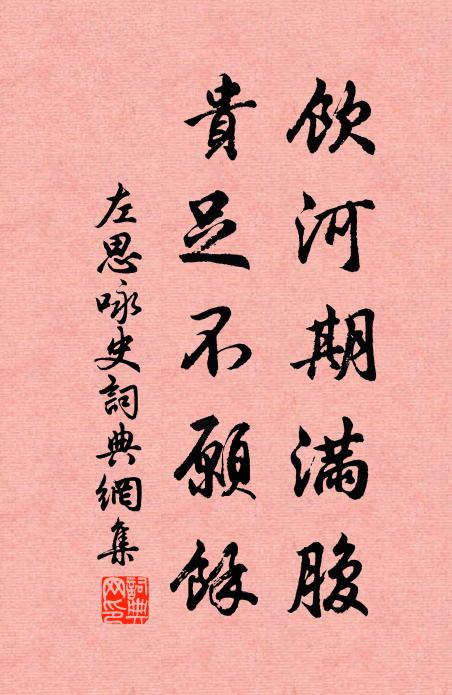 飲河期滿腹
貴足不願餘
左思咏史詞典網集
詞典網印